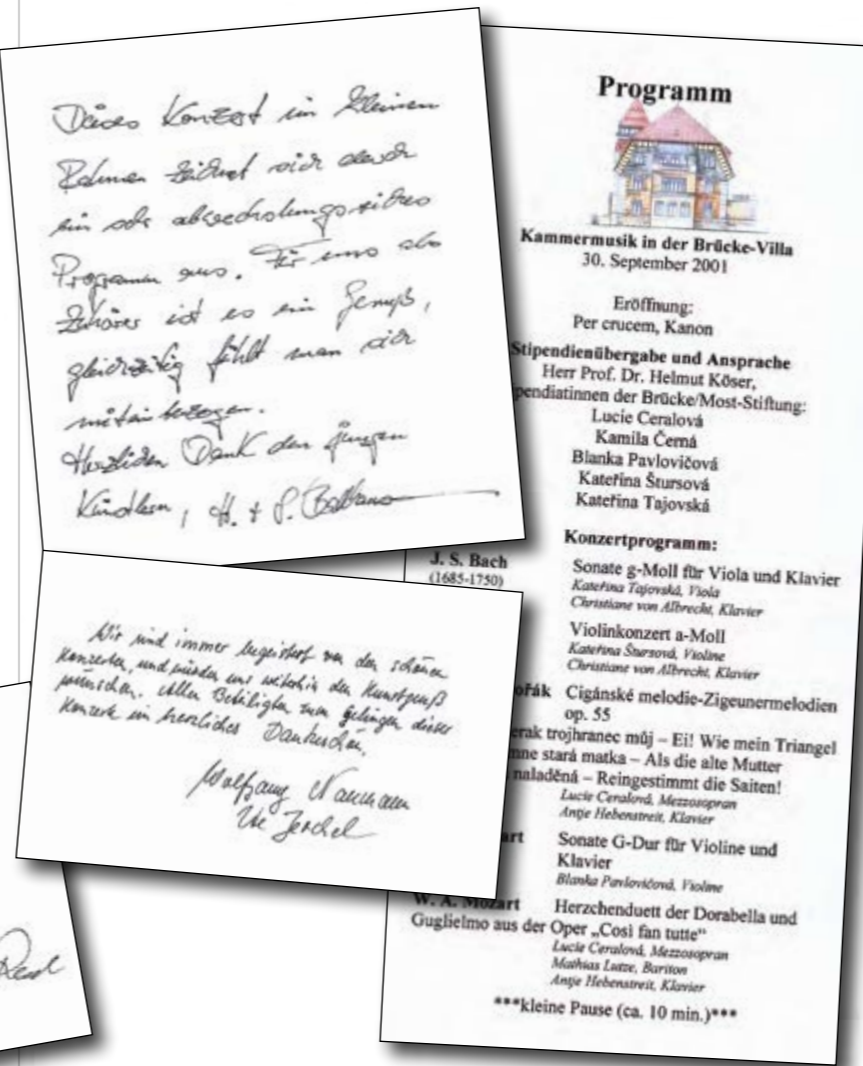 Dieses Konzert im kleinen
Rahmen zeichnet sich durch
ein sehr abwechslungsreiches
Programm aus. Für uns als
Zuhörer ist es ein Genuß,
gleichzeitig fühlt man sich
miteinbezogen.
Herzlichen Dank den jungen
Künstlern, H. + S.
Wir sind immer begeistert von den schönen
Konzerten, und würden uns weiterhin den Kunstgenuß
wünschen. Allen Beteiligten zum Gelingen dieser
Konzerte ein herzliches Dankeschön.
Wolfgang Naumann
Ute
Programm
Kammermusik in der Brücke-Villa
30. September 2001
Eröffnung:
Per crucem, Kanon
Stipendienübergabe und Ansprache
Herr Prof. Dr. Helmut Köser,
pendiatinnen der Brücke/Most-Stiftung:
Lucie Ceralová
Kamila Černá
Blanka Pavlovičová
Kateřina Štursová
Kateřina Tajovská
Konzertprogramm:
J. S. Bach Sonate g-Moll für Viola und Klavier
(1685-1750) Kateřina Tajovská, Viola
Christiane von Albrecht, Klavier
Violinkonzert a-Moll
Kateřina Štursová, Violine
Christiane von Albrecht, Klavier
ořák Cigánské melodie-Zigeunermelodien
op. 55
erak trojhranec můj – Ei! Wie mein Triangel
mne stará matka – Als die alte Mutter
naladěná – Reingestimmt die Saiten!
Lucie Ceralová, Mezzosopran
Antje Hebenstreit, Klavier
art Sonate G-Dur für Violine und
Klavier
Blanka Pavlovičová, Violine
W. A. Mozart Herzchenduett der Dorabella und
Guglielmo aus der Oper „Così fan tutte"
Lucie Ceralová, Mezzosopran
Mathias Lutze, Bariton
Antje Hebenstreit, Klavier
***kleine Pause (ca. 10 min.)***